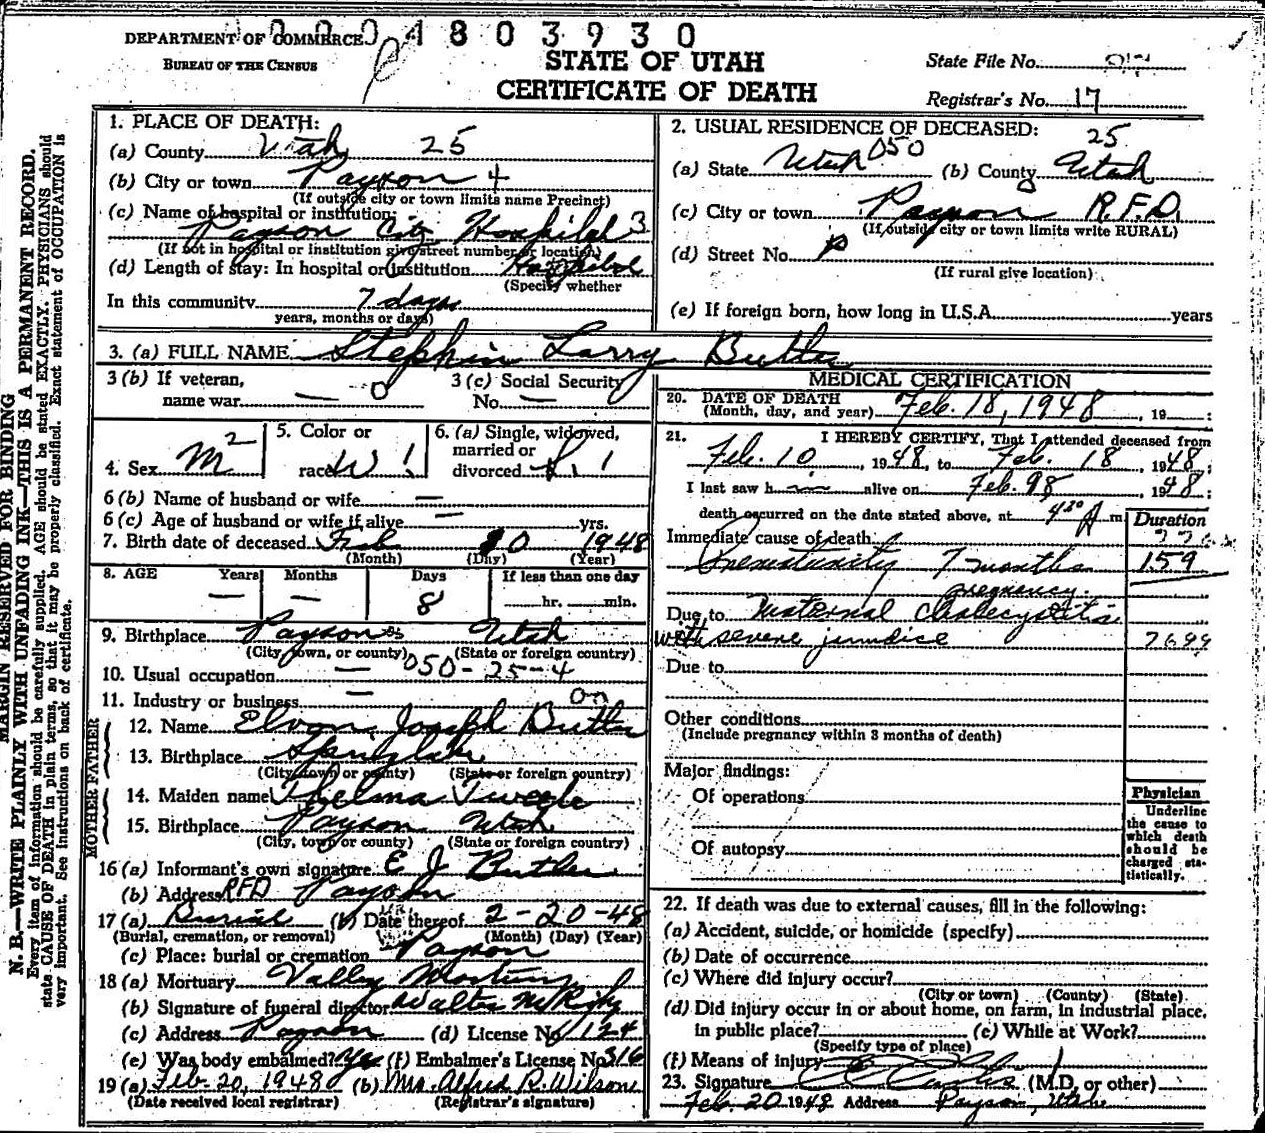 DEPARTMENT OF COMMERCE
BUREAU OF THE CENSUS
4803930
STATE OF UTAH
CERTIFICATE OF DEATH
State File No.
Registrar's No. 17
MARGIN RESERVED FOR BINDING
N. B.—WRITE PLAINLY WITH UNFADING INK—THIS IS A PERMANENT RECORD.
Every item of information should be carefully supplied. AGE should be stated EXACTLY. PHYSICIANS should
state CAUSE OF DEATH in plain terms, so that it may be properly classified. Exact statement of OCCUPATION is
very important. See instructions on back of certificate.
1. PLACE OF DEATH:
(a) County Utah 25
(b) City or town Payson 4
(If outside city or town limits name Precinct)
(c) Name of hospital or institution:
Payson City Hospital 3
(If not in hospital or institution give street number or location)
(d) Length of stay: In hospital or institution Hospital
(Specify whether
In this community 7 days
years, months or days)
2. USUAL RESIDENCE OF DECEASED:
25
(a) State Utah 050 (b) County Utah
(c) City or town Payson R.F.D.
(If outside city or town limits write RURAL)
(d) Street No.
(If rural give location)
(e) If foreign born, how long in U.S.A. years
3. (a) FULL NAME Stephin Larry Butler
3 (b) If veteran, name war — 0
3 (c) Social Security No. —
4. Sex M 2
5. Color or race W 1
6. (a) Single, widowed, married or divorced
6 (b) Name of husband or wife —
6 (c) Age of husband or wife if alive — yrs.
7. Birth date of deceased Feb 10 1948
(Month) (Day) (Year)
8. AGE Years — Months — Days 8 If less than one day
hr. min.
9. Birthplace Payson Utah
(City, town, or county) (State or foreign country)
10. Usual occupation — 050-25-4
11. Industry or business —
MOTHER FATHER
12. Name Elvon Joseph Butler
13. Birthplace Spring Lake
(City, town or county) (State or foreign country)
14. Maiden name Thelma Tweede
15. Birthplace Payson Utah
(City, town or county) (State or foreign country)
16 (a) Informant's own signature E J Butler
(b) Address RFD Payson
17 (a) Burial (b) Date thereof 2-20-48
(Burial, cremation, or removal) (Month) (Day) (Year)
(c) Place: burial or cremation Payson
18 (a) Mortuary Valley Mortuary
(b) Signature of funeral director Walter M Rigby
(c) Address Payson (d) License No. 1124
(e) Was body embalmed? Yes (f) Embalmer's License No. 316
19 (a) Feb. 20, 1948 (b) Mrs. Alfred R. Wilson
(Date received local registrar) (Registrar's signature)
MEDICAL CERTIFICATION
20. DATE OF DEATH
(Month, day, and year) Feb. 18, 1948, 19 :
21. I HEREBY CERTIFY, That I attended deceased from
Feb. 10, 1948, to Feb. 18 1948;
I last saw h alive on Feb. 1948;
death occurred on the date stated above, at 4 30 A m.
Duration
Immediate cause of death
Prematurity 7 months 159
pregnancy.
Due to Maternal Cholecystitis
with severe jaundice
Due to
Other conditions
(Include pregnancy within 3 months of death)
Major findings:
Of operations
Of autopsy
Physician
Underline the cause to which death should be charged statistically.
22. If death was due to external causes, fill in the following:
(a) Accident, suicide, or homicide (specify)
(b) Date of occurrence
(c) Where did injury occur?
(City or town) (County) (State)
(d) Did injury occur in or about home, on farm, in industrial place,
in public place? (e) While at Work?
(Specify type of place)
(f) Means of injury
23. Signature (M.D. or other)
Feb. 20 1948 Address Payson, Utah